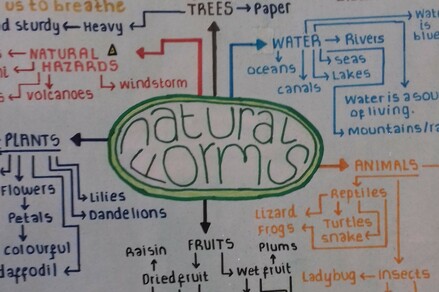 us to breathe
TREES → Paper
and sturdy ← Heavy
Water
is blue
NATURAL
HAZARDS
volcanoes
windstorm
WATER → Rivers
oceans
seas
Lakes
canals
Water is a sou
of living.
Mountains/ra
natural
Forms
PLANTS
Flowers
Petals
colourful
daffodil
Lilies
Dandelions
ANIMALS
Reptiles
Lizard
Frogs
Turtles
snake
Ladybug ← Insects
FRUITS
Raisin
Dried fruit
Plums
Wet fruit